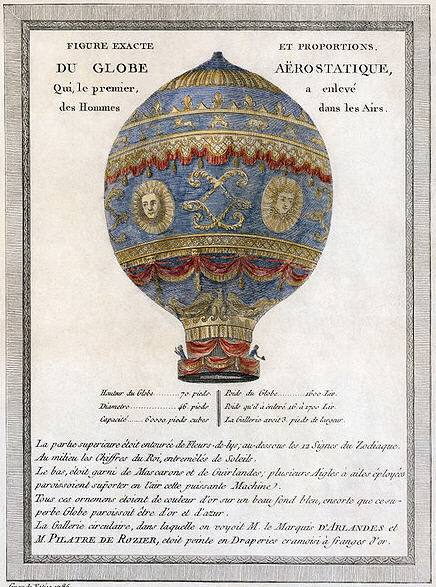 FIGURE EXACTE ET PROPORTIONS,
DU GLOBE AËROSTATIQUE,
Qui, le premier, a enlevé
des Hommes dans les Airs.
Hauteur du Globe........... 70. pieds.
Diametre............ 46. pieds
Capacité...... 60000. pieds cubes
Poids du Globe......... 1600. Liv.
Poids qu'il à enlevé 16. à 1700 Liv.
La Gallerie avoit 3. pieds de largeur.
La partie superieure étoit entourée de Fleurs-de-lys; au-dessous les 12 Signes du Zodiaque.
Au milieu les Chiffres du Roi, entremêlés de Soleils.
Le bas, étoit garni de Mascarons et de Guirlandes; plusieurs Aigles à ailes éployées
paroissoient suporter en l'air cette puissante Machine.
Tous ces ornemens étoient de couleur d'or sur un beau fond bleu, ensorte que ce su-
perbe Globe paroissoit être d'or et d'azur.
La Gallerie circulaire, dans laquelle on voyoit M. le Marquis D'ARLANDES et
M. PILATRE DE ROZIER, étoit peinte en Draperies cramoisi à franges d'or.
1786